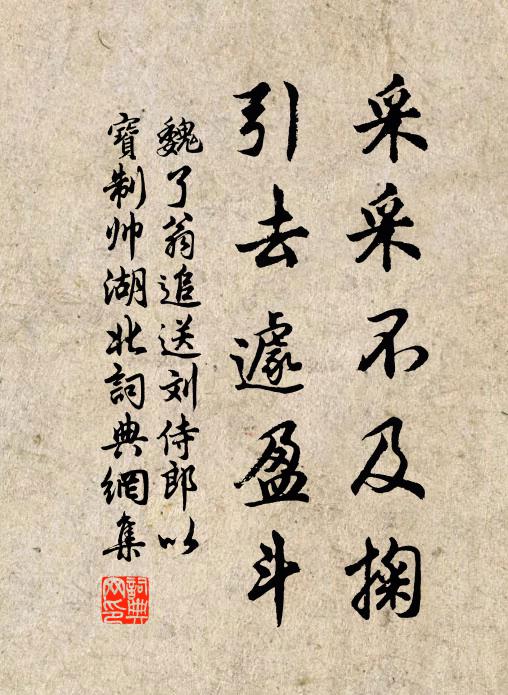 采采不及掬
引去遽盈斗
魏了翁追送刘侍郎以
寶制帅湖北詞典網集
詞典網印